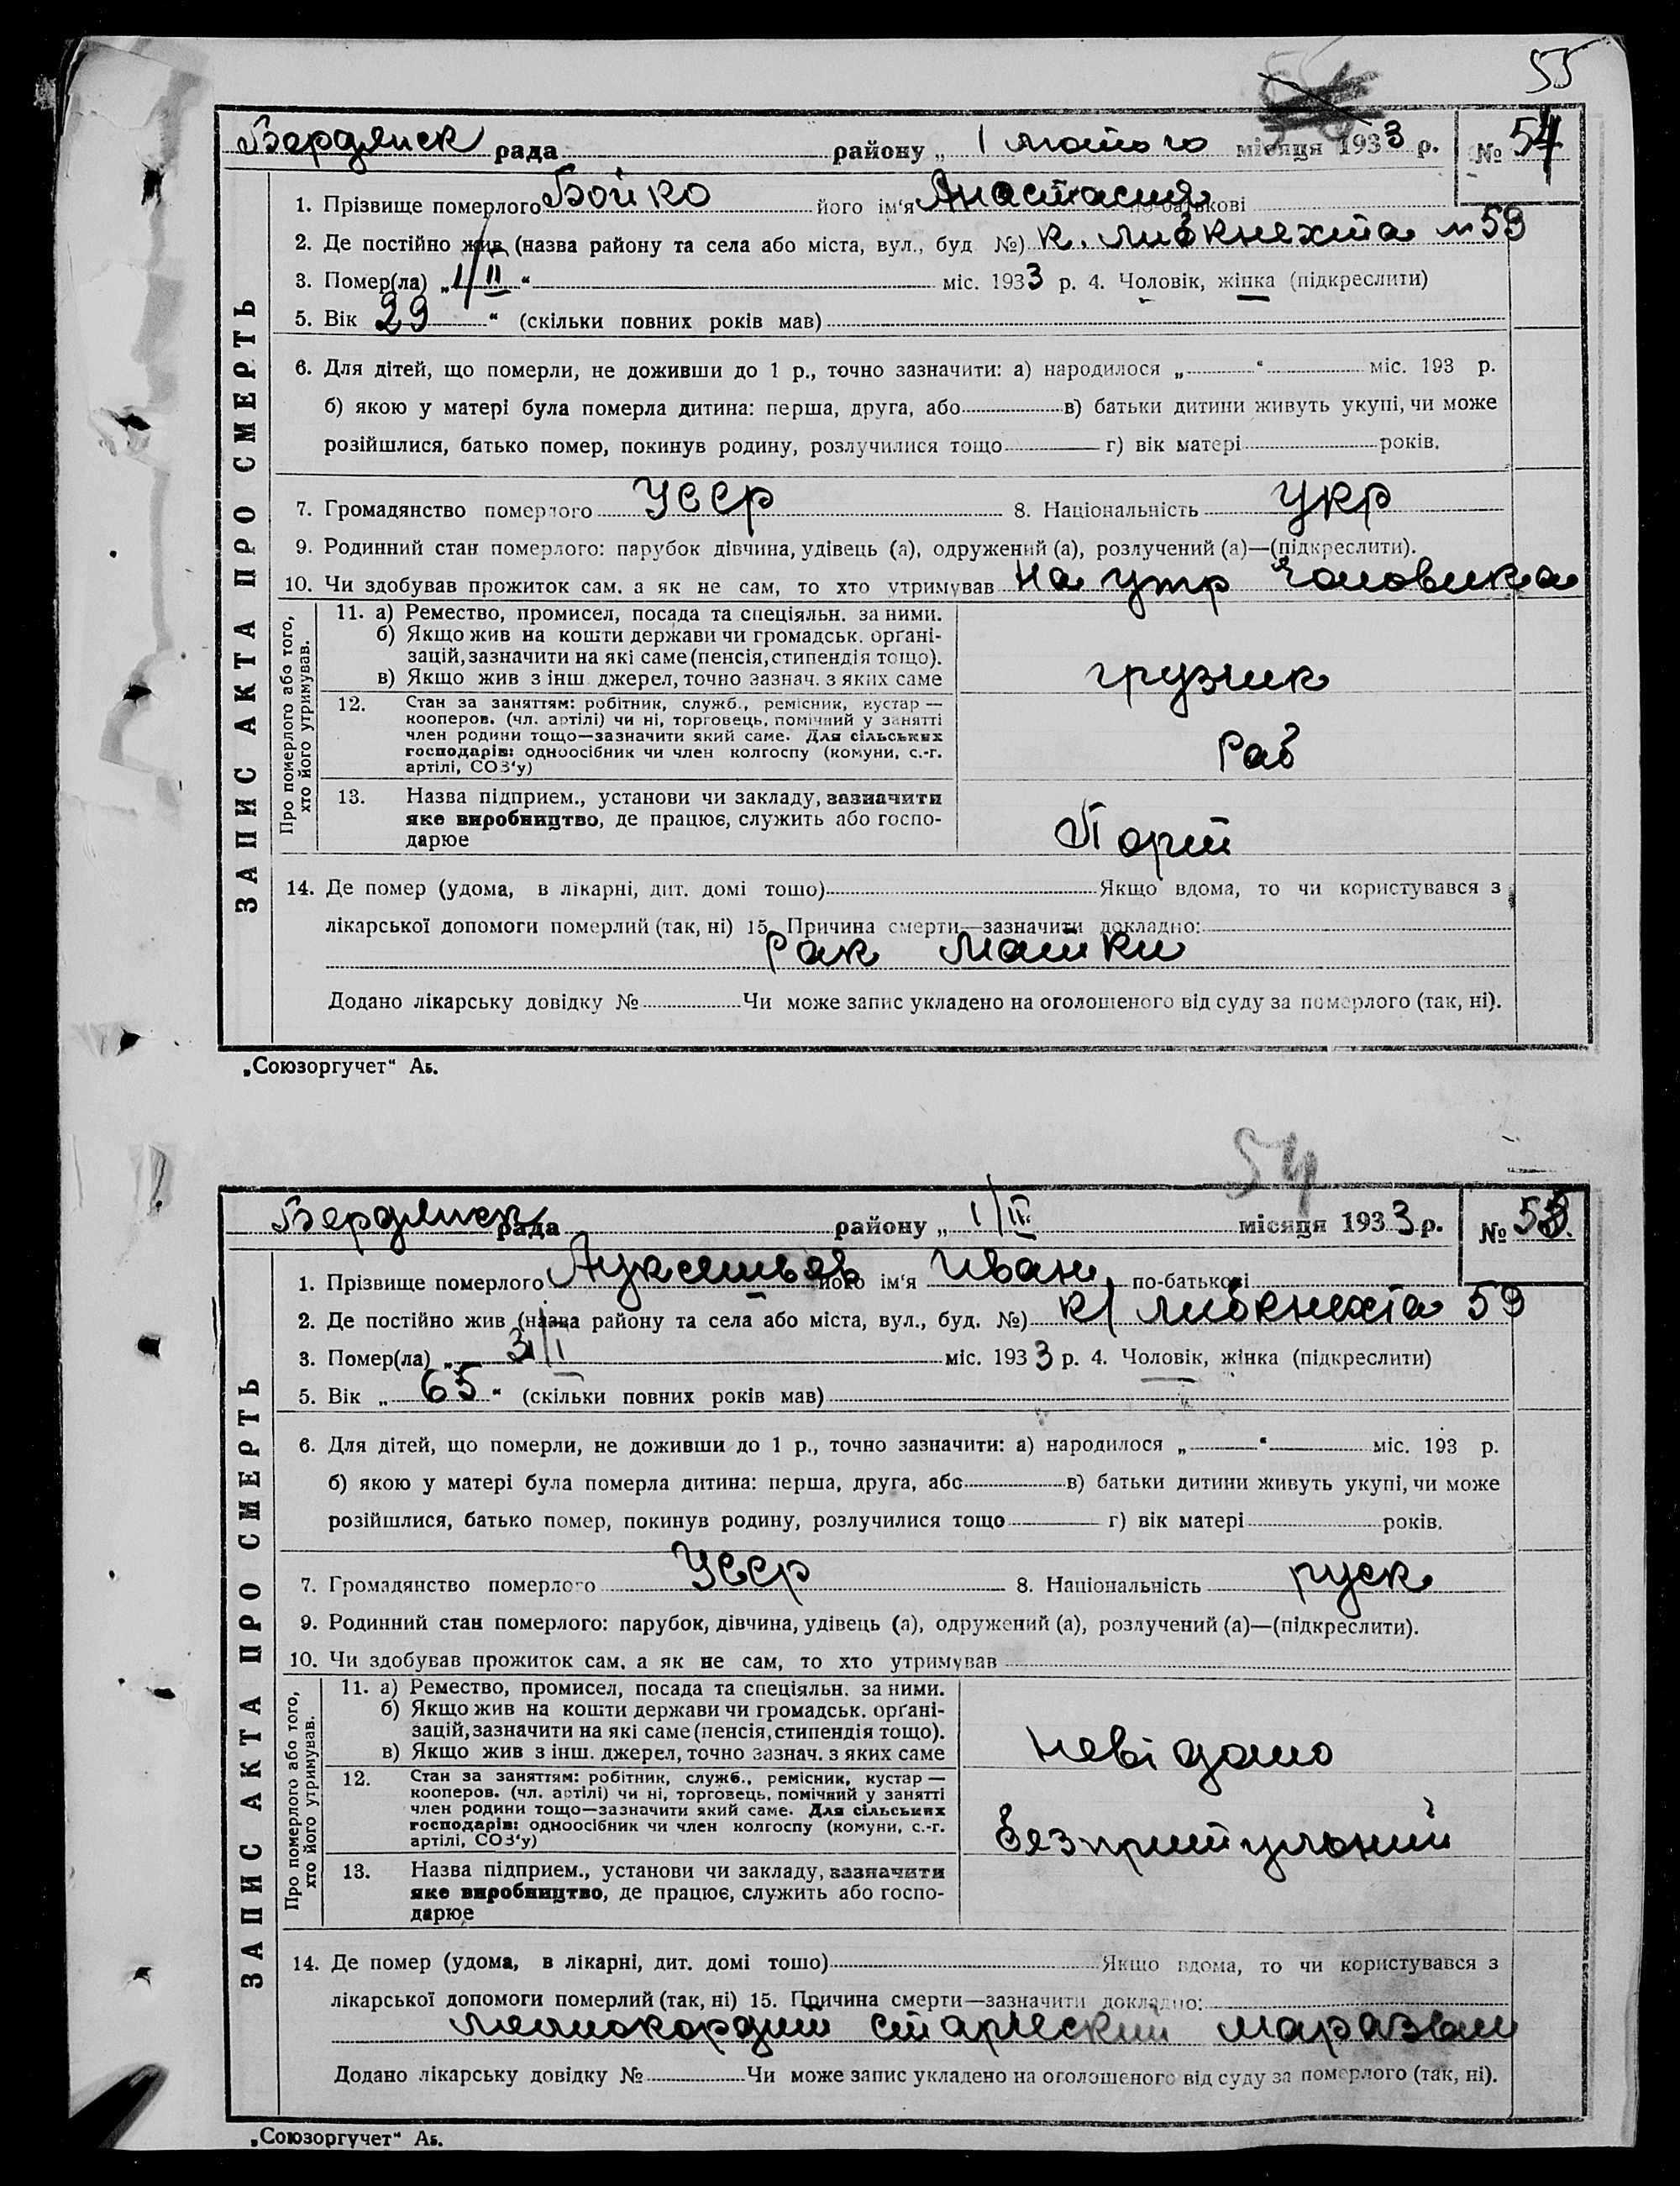 55
Бердянск рада районy „ 1 лютого місяця 1933 р. № 54
1. Прізвище померлого Бойко його ім'я Анастасия по-батькові
2. Де постійно жив (назва району та села або міста, вул., буд. №) К. Либкнехта № 59
3. Помер(ла) „ 1/II “ міс. 1933 р. 4. Чоловік, жінка (підкреслити)
5. Вік 29 “ (скільки повних років мав)
6. Для дітей, що померли, не доживши до 1 р., точно зазначити: а) народилося „ “ міс. 193 р.
б) якою у матері була померла дитина: перша, друга, або в) батьки дитини живуть укупі, чи може
розійшлися, батько помер, покинув родину, розлучилися тощо г) вік матері років.
7. Громадянство померлого УССР 8. Національність укр
9. Родинний стан померлого: парубок дівчина, удівець (а), одружений (а), розлучений (а)—(підкреслити).
10. Чи здобував прожиток сам. а як не сам, то хто утримував на утр Чоловика
ЗАПИС АКТА ПРО СМЕРТЬ
Про померлого або того, хто його утримував.
11. а) Ремество, промисел, посада та спеціяльн. за ними.
б) Якщо жив на кошти держави чи громадськ. орґані-
зацій, зазначити на які саме (пенсія, стипендія тощо).
в) Якщо жив з інш. джерел, точно зазнач. з яких саме
грузчик
12. Стан за заняттям: робітник, служб., ремісник, кустар —
кооперов. (чл. артілі) чи ні, торговець, помічний у занятті
член родини тощо—зазначити який саме. Для сільських
господарів: одноосібник чи член колгоспу (комуни, с.-г.
артілі, СОЗ'у)
Раб
13. Назва підприєм., установи чи закладу, зазначити
яке виробництво, де працює, служить або госпо-
дарює
Порт
14. Де помер (удома, в лікарні, дит. домі тощо) Якщо вдома, то чи користувався з
лікарської допомоги померлий (так, ні) 15. Причина смерти—зазначити докладно:
Рак матки
Додано лікарську довідку № Чи може запис укладено на оголошеного від суду за померлого (так, ні).
„Союзоргучет“ Аб.
54
Бердянск рада району „ 1/II місяця 1933 р. № 53.
1. Прізвище померлого його ім'я Иван по-батькові
2. Де постійно жив (назва району та села або міста, вул., буд. №) К/ Либкнехта 59
3. Помер(ла) „ 31/I міс. 1933 р. 4. Чоловік, жінка (підкреслити)
5. Вік „ 65 “ (скільки повних років мав)
6. Для дітей, що померли, не доживши до 1 р., точно зазначити: а) народилося „ “ міс. 193 р.
б) якою у матері була померла дитина: перша, друга, або в) батьки дитини живуть укупі, чи може
розійшлися, батько помер, покинув родину, розлучилися тощо г) вік матері років.
7. Громадянство померлого УССР 8. Національність руск
9. Родинний стан померлого: парубок, дівчина, удівець (а), одружений (а), розлучений (а)—(підкреслити).
10. Чи здобував прожиток сам, а як не сам, то хто утримував
ЗАПИС АКТА ПРО СМЕРТЬ
Про померлого або того, хто його утримував.
11. а) Ремество, промисел, посада та спеціяльн. за ними.
б) Якщо жив на кошти держави чи громадськ. орґані-
зацій, зазначити на які саме (пенсія, стипендія тощо).
в) Якщо жив з інш. джерел, точно зазнач. з яких саме
невідомо
12. Стан за заняттям: робітник, служб., ремісник, кустар —
кооперов. (чл. артілі) чи ні, торговець, помічний у занятті
член родини тощо—зазначити який саме. Для сільських
господарів: одноосібник чи член колгоспу (комуни, с.-г.
артілі, СОЗ'у)
Безпритульний
13. Назва підприєм., установи чи закладу, зазначити
яке виробництво, де працює, служить або госпо-
дарює
14. Де помер (удома, в лікарні, дит. домі тощо) Якщо вдома, то чи користувався з
лікарської допомоги померлий (так, ні) 15. Причина смерти—зазначити докладно:
старческий маразм
Додано лікарську довідку № Чи може запис укладено на оголошеного від суду за померлого (так, ні).
„Союзоргучет“ Аб.